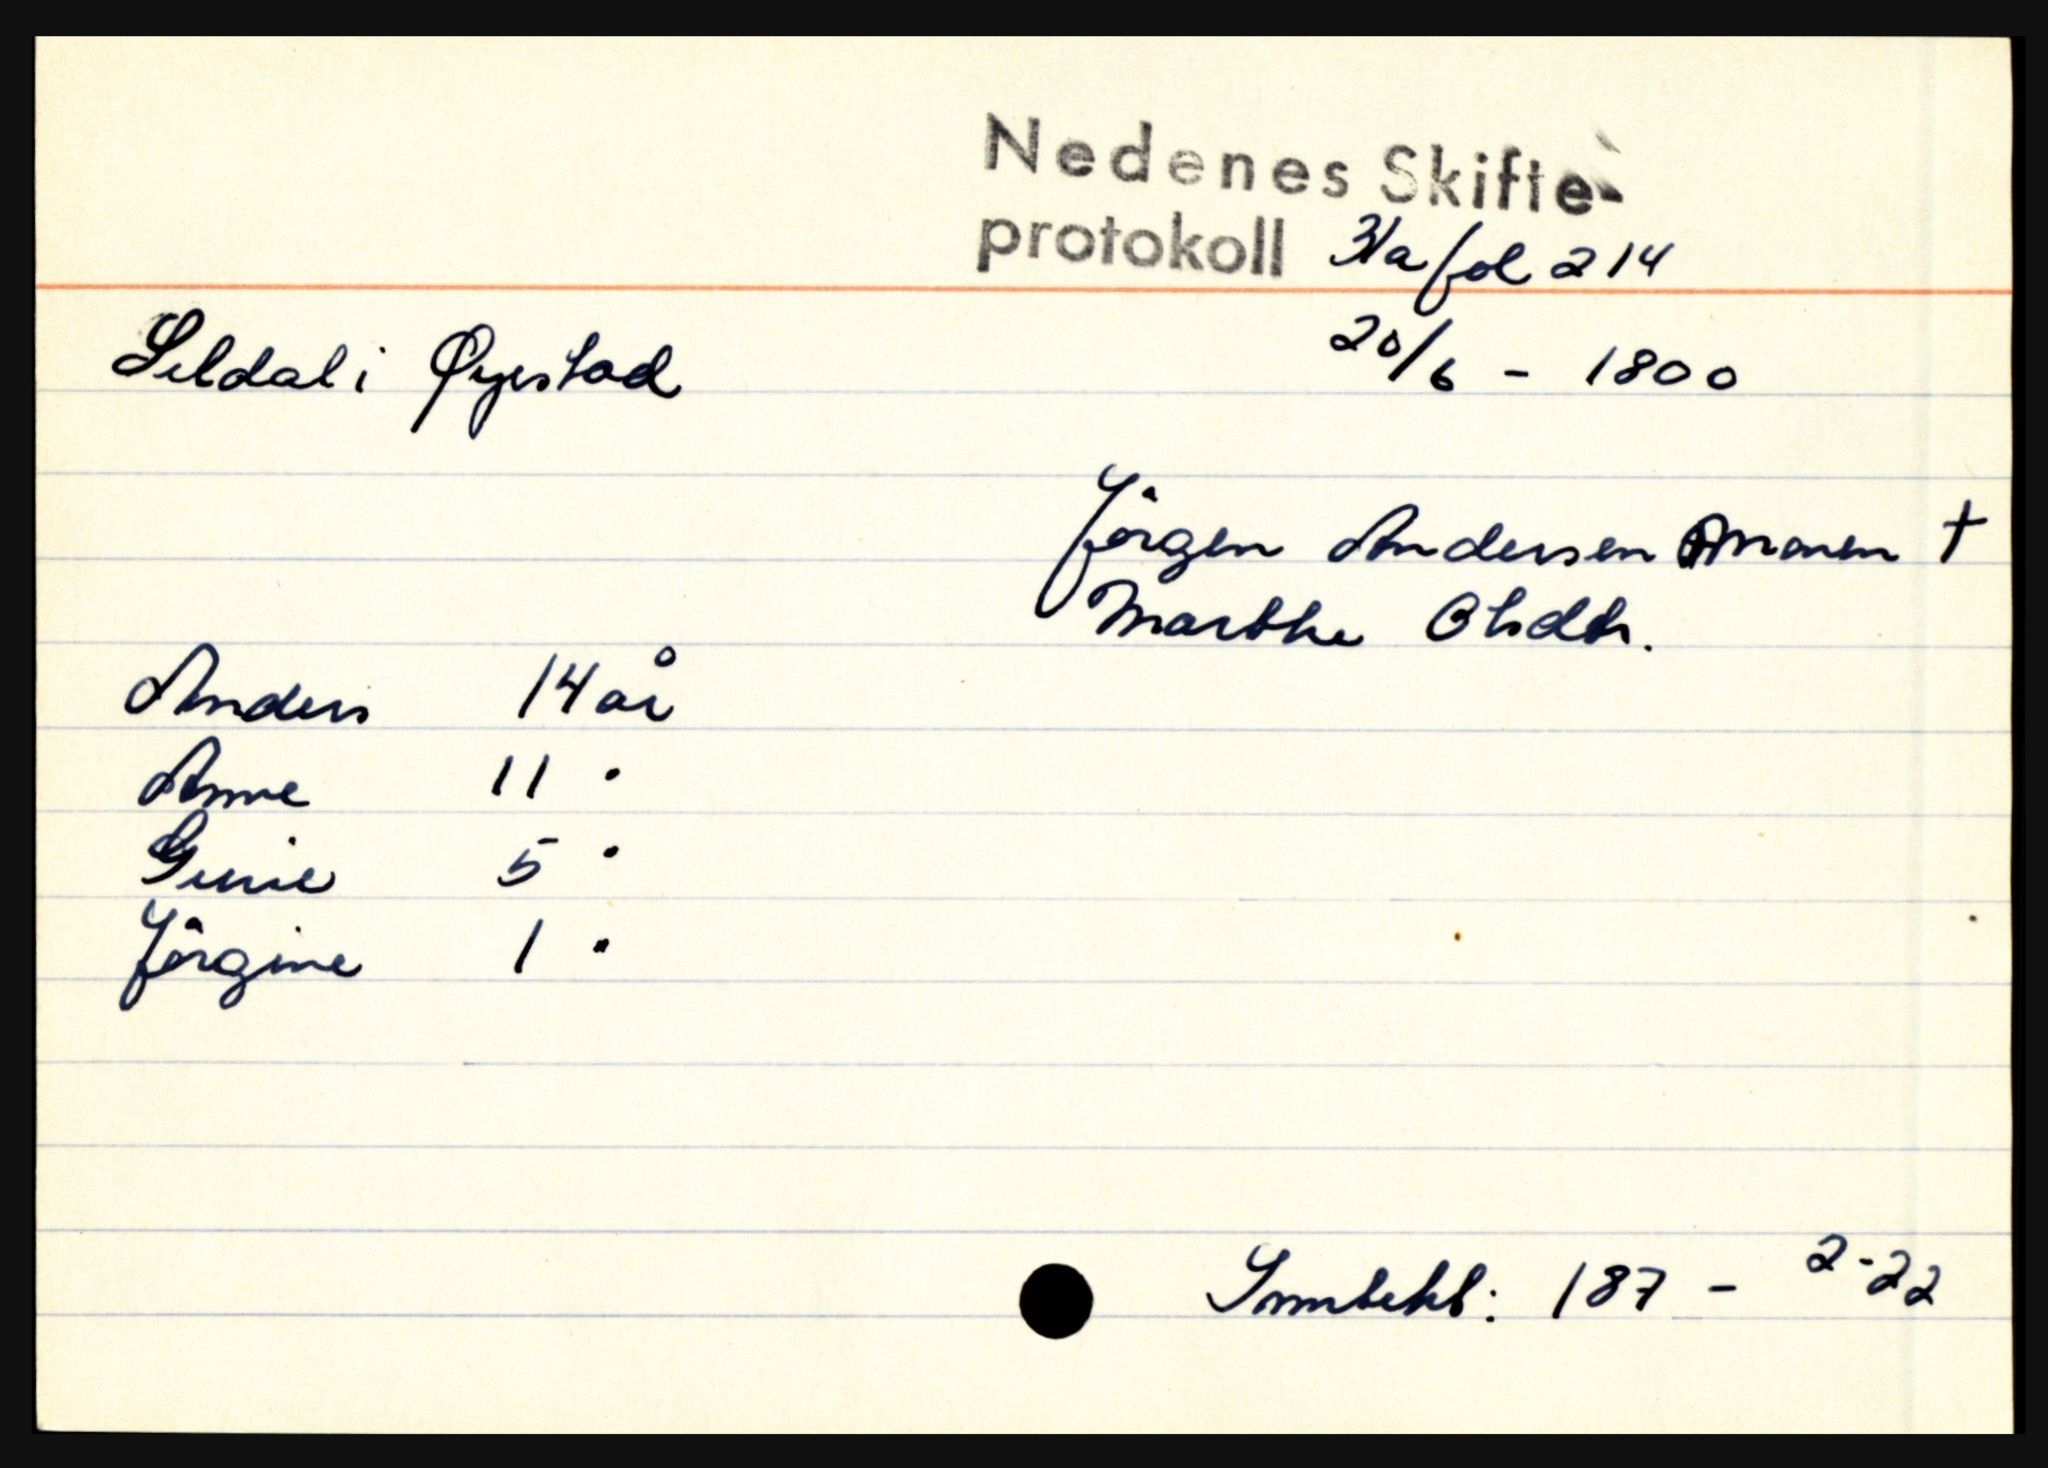 Nedenes Skifte-
protokoll 31a fol 214
Seldal i Øyestad 20/6 - 1800
Jörgen Andersen Monen †
Marthe Olsdtr.
Anders 14 år
Anne 11 "
Gurie 5 "
Jörgine 1 "
Inntekt: 187 - 2-22